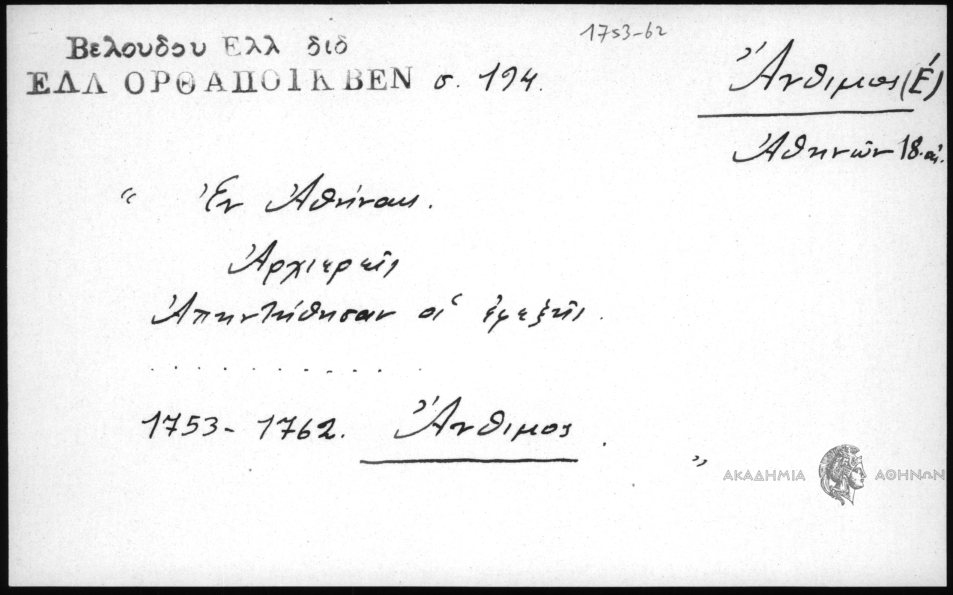 1753-62
Βελουδου Ελλ διδ
ΕΛΛ ΟΡΘ ΑΠΟΙΚ ΒΕΝ σ. 194.
Ἄνθιμος (Έ)
Ἀθηνῶν 18. αἰ.
“ Ἐν Ἀθήναις.
Ἀρχιερεῖς
Ἀπηντήθησαν οἱ ἐφεξῆς.
. . . . . . . . . . .
1753-1762. Ἄνθιμος. ”
ΑΚΑΔΗΜΙΑ ΑΘΗΝΩΝ